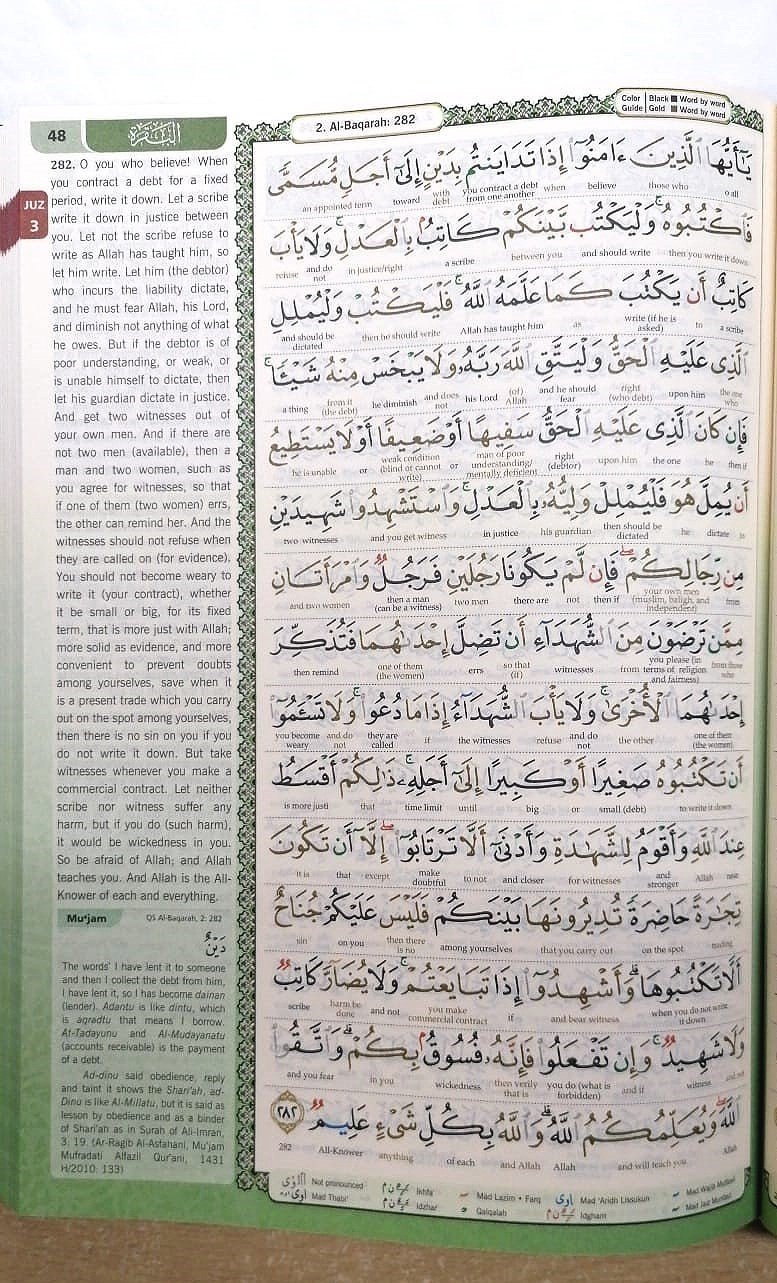 48
البقرة
2. Al-Baqarah: 282
Color Guide
Black ■ Word by word
Gold ■ Word by word
JUZ
3
282. O you who believe! When
you contract a debt for a fixed
period, write it down. Let a scribe
write it down in justice between
you. Let not the scribe refuse to
write as Allah has taught him, so
let him write. Let him (the debtor)
who incurs the liability dictate,
and he must fear Allah, his Lord,
and diminish not anything of what
he owes. But if the debtor is of
poor understanding, or weak, or
is unable himself to dictate, then
let his guardian dictate in justice.
And get two witnesses out of
your own men. And if there are
not two men (available), then a
man and two women, such as
you agree for witnesses, so that
if one of them (two women) errs,
the other can remind her. And the
witnesses should not refuse when
they are called on (for evidence).
You should not become weary to
write it (your contract), whether
it be small or big, for its fixed
term, that is more just with Allah;
more solid as evidence, and more
convenient to prevent doubts
among yourselves, save when it
is a present trade which you carry
out on the spot among yourselves,
then there is no sin on you if you
do not write it down. But take
witnesses whenever you make a
commercial contract. Let neither
scribe nor witness suffer any
harm, but if you do (such harm),
it would be wickedness in you.
So be afraid of Allah; and Allah
teaches you. And Allah is the All-
Knower of each and everything.
Mu'jam QS Al-Baqarah, 2: 282
دَيْنٌ
The words' I have lent it to someone
and then I collect the debt from him,
I have lent it, so I has become dainan
(lender). Adantu is like dintu, which
is aqradtu that means I borrow.
At-Tadayunu and Al-Mudayanatu
(accounts receivable) is the payment
of a debt.
Ad-dinu said obedience, reply
and taint it shows the Shari'ah, ad-
Dinu is like Al-Millatu, but it is said as
lesson by obedience and as a binder
of Shari'ah as in Surah of Ali-Imran,
3: 19. (Ar-Ragib Al-Asfahani, Mu'jam
Mufradati Alfazil Qur'ani, 1431
H/2010: 133)
يَٰٓأَيُّهَا ٱلَّذِينَ ءَامَنُوٓا۟ إِذَا تَدَايَنتُم بِدَيْنٍ إِلَىٰٓ أَجَلٍ مُّسَمًّى
an appointed term toward with debt you contract a debt from one another when believe those who o all
فَٱكْتُبُوهُ ۚ وَلْيَكْتُب بَّيْنَكُمْ كَاتِبٌۢ بِٱلْعَدْلِ ۚ وَلَا يَأْبَ
refuse and do not in justice/right a scribe between you and should write then you write it down
كَاتِبٌ أَن يَكْتُبَ كَمَا عَلَّمَهُ ٱللَّهُ ۚ فَلْيَكْتُبْ وَلْيُمْلِلِ
and should be dictated then he should write Allah has taught him as write (if he is asked) to a scribe
ٱلَّذِى عَلَيْهِ ٱلْحَقُّ وَلْيَتَّقِ ٱللَّهَ رَبَّهُۥ وَلَا يَبْخَسْ مِنْهُ شَيْـًٔا ۚ
a thing from it (the debt) he diminish and does not his Lord (of) Allah and he should fear right (who debt) upon him the one who
فَإِن كَانَ ٱلَّذِى عَلَيْهِ ٱلْحَقُّ سَفِيهًا أَوْ ضَعِيفًا أَوْ لَا يَسْتَطِيعُ
he is unable or weak condition (blind or cannot write) or man of poor understanding/ mentally deficient right (debtor) upon him the one be then if
أَن يُمِلَّ هُوَ فَلْيُمْلِلْ وَلِيُّهُۥ بِٱلْعَدْلِ ۚ وَٱسْتَشْهِدُوا۟ شَهِيدَيْنِ
two witnesses and you get witness in justice his guardian then should be dictated he dictate to
مِن رِّجَالِكُمْ ۖ فَإِن لَّمْ يَكُونَا رَجُلَيْنِ فَرَجُلٌ وَٱمْرَأَتَانِ
and two women then a man (can be a witness) two men there are not then if your own men (muslim, baligh, and independent) from
مِمَّن تَرْضَوْنَ مِنَ ٱلشُّهَدَآءِ أَن تَضِلَّ إِحْدَىٰهُمَا فَتُذَكِّرَ
then remind one of them (the women) errs so that (if) witnesses from you please (in terms of religion and fairness) from those who
إِحْدَىٰهُمَا ٱلْأُخْرَىٰ ۚ وَلَا يَأْبَ ٱلشُّهَدَآءُ إِذَا مَا دُعُوا۟ ۚ وَلَا تَسْـَٔمُوٓا۟
you become weary and do not they are called if the witnesses refuse and do not the other one of them (the women)
أَن تَكْتُبُوهُ صَغِيرًا أَوْ كَبِيرًا إِلَىٰٓ أَجَلِهِۦ ۚ ذَٰلِكُمْ أَقْسَطُ
is more justi that time limit until big or small (debt) to write it down
عِندَ ٱللَّهِ وَأَقْوَمُ لِلشَّهَٰدَةِ وَأَدْنَىٰٓ أَلَّا تَرْتَابُوٓا۟ ۖ إِلَّآ أَن تَكُونَ
it is that except make doubtful to not and closer for witnesses and stronger Allah near
تِجَٰرَةً حَاضِرَةً تُدِيرُونَهَا بَيْنَكُمْ فَلَيْسَ عَلَيْكُمْ جُنَاحٌ
sin on you then there is no among yourselves that you carry out on the spot trading
أَلَّا تَكْتُبُوهَا ۗ وَأَشْهِدُوٓا۟ إِذَا تَبَايَعْتُمْ ۚ وَلَا يُضَآرَّ كَاتِبٌ
scribe harm be done and not you make commercial contract if and bear witness when you do not write it down
وَلَا شَهِيدٌ ۚ وَإِن تَفْعَلُوا۟ فَإِنَّهُۥ فُسُوقٌۢ بِكُمْ ۗ وَٱتَّقُوا۟
and you fear in you wickedness then verily that is you do (what is forbidden) and if witness and not
ٱللَّهَ ۖ وَيُعَلِّمُكُمُ ٱللَّهُ ۗ وَٱللَّهُ بِكُلِّ شَىْءٍ عَلِيمٌ ٢٨٢
282 All-Knower anything of each and Allah Allah and will teach you Allah
Not pronounced Ikhfa Mad Lazim • Farq Mad 'Aridh Lissukun Mad Wajib Muttasil
Mad Thabi'i Idzhar Qalqalah Idgham Mad Jaiz Munfasil